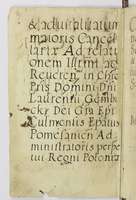 & ad vitulatum
maioris Cancel
lariæ Ad relati
onem Illtmi ac
Reveren: in Chr
Pris Domini Dni
Laurentii Gembi
cki Dei Gra Epi
Culmensis Epatus
Pomesanien Ad
ministratoris perpe
tui Regni Poloniæ